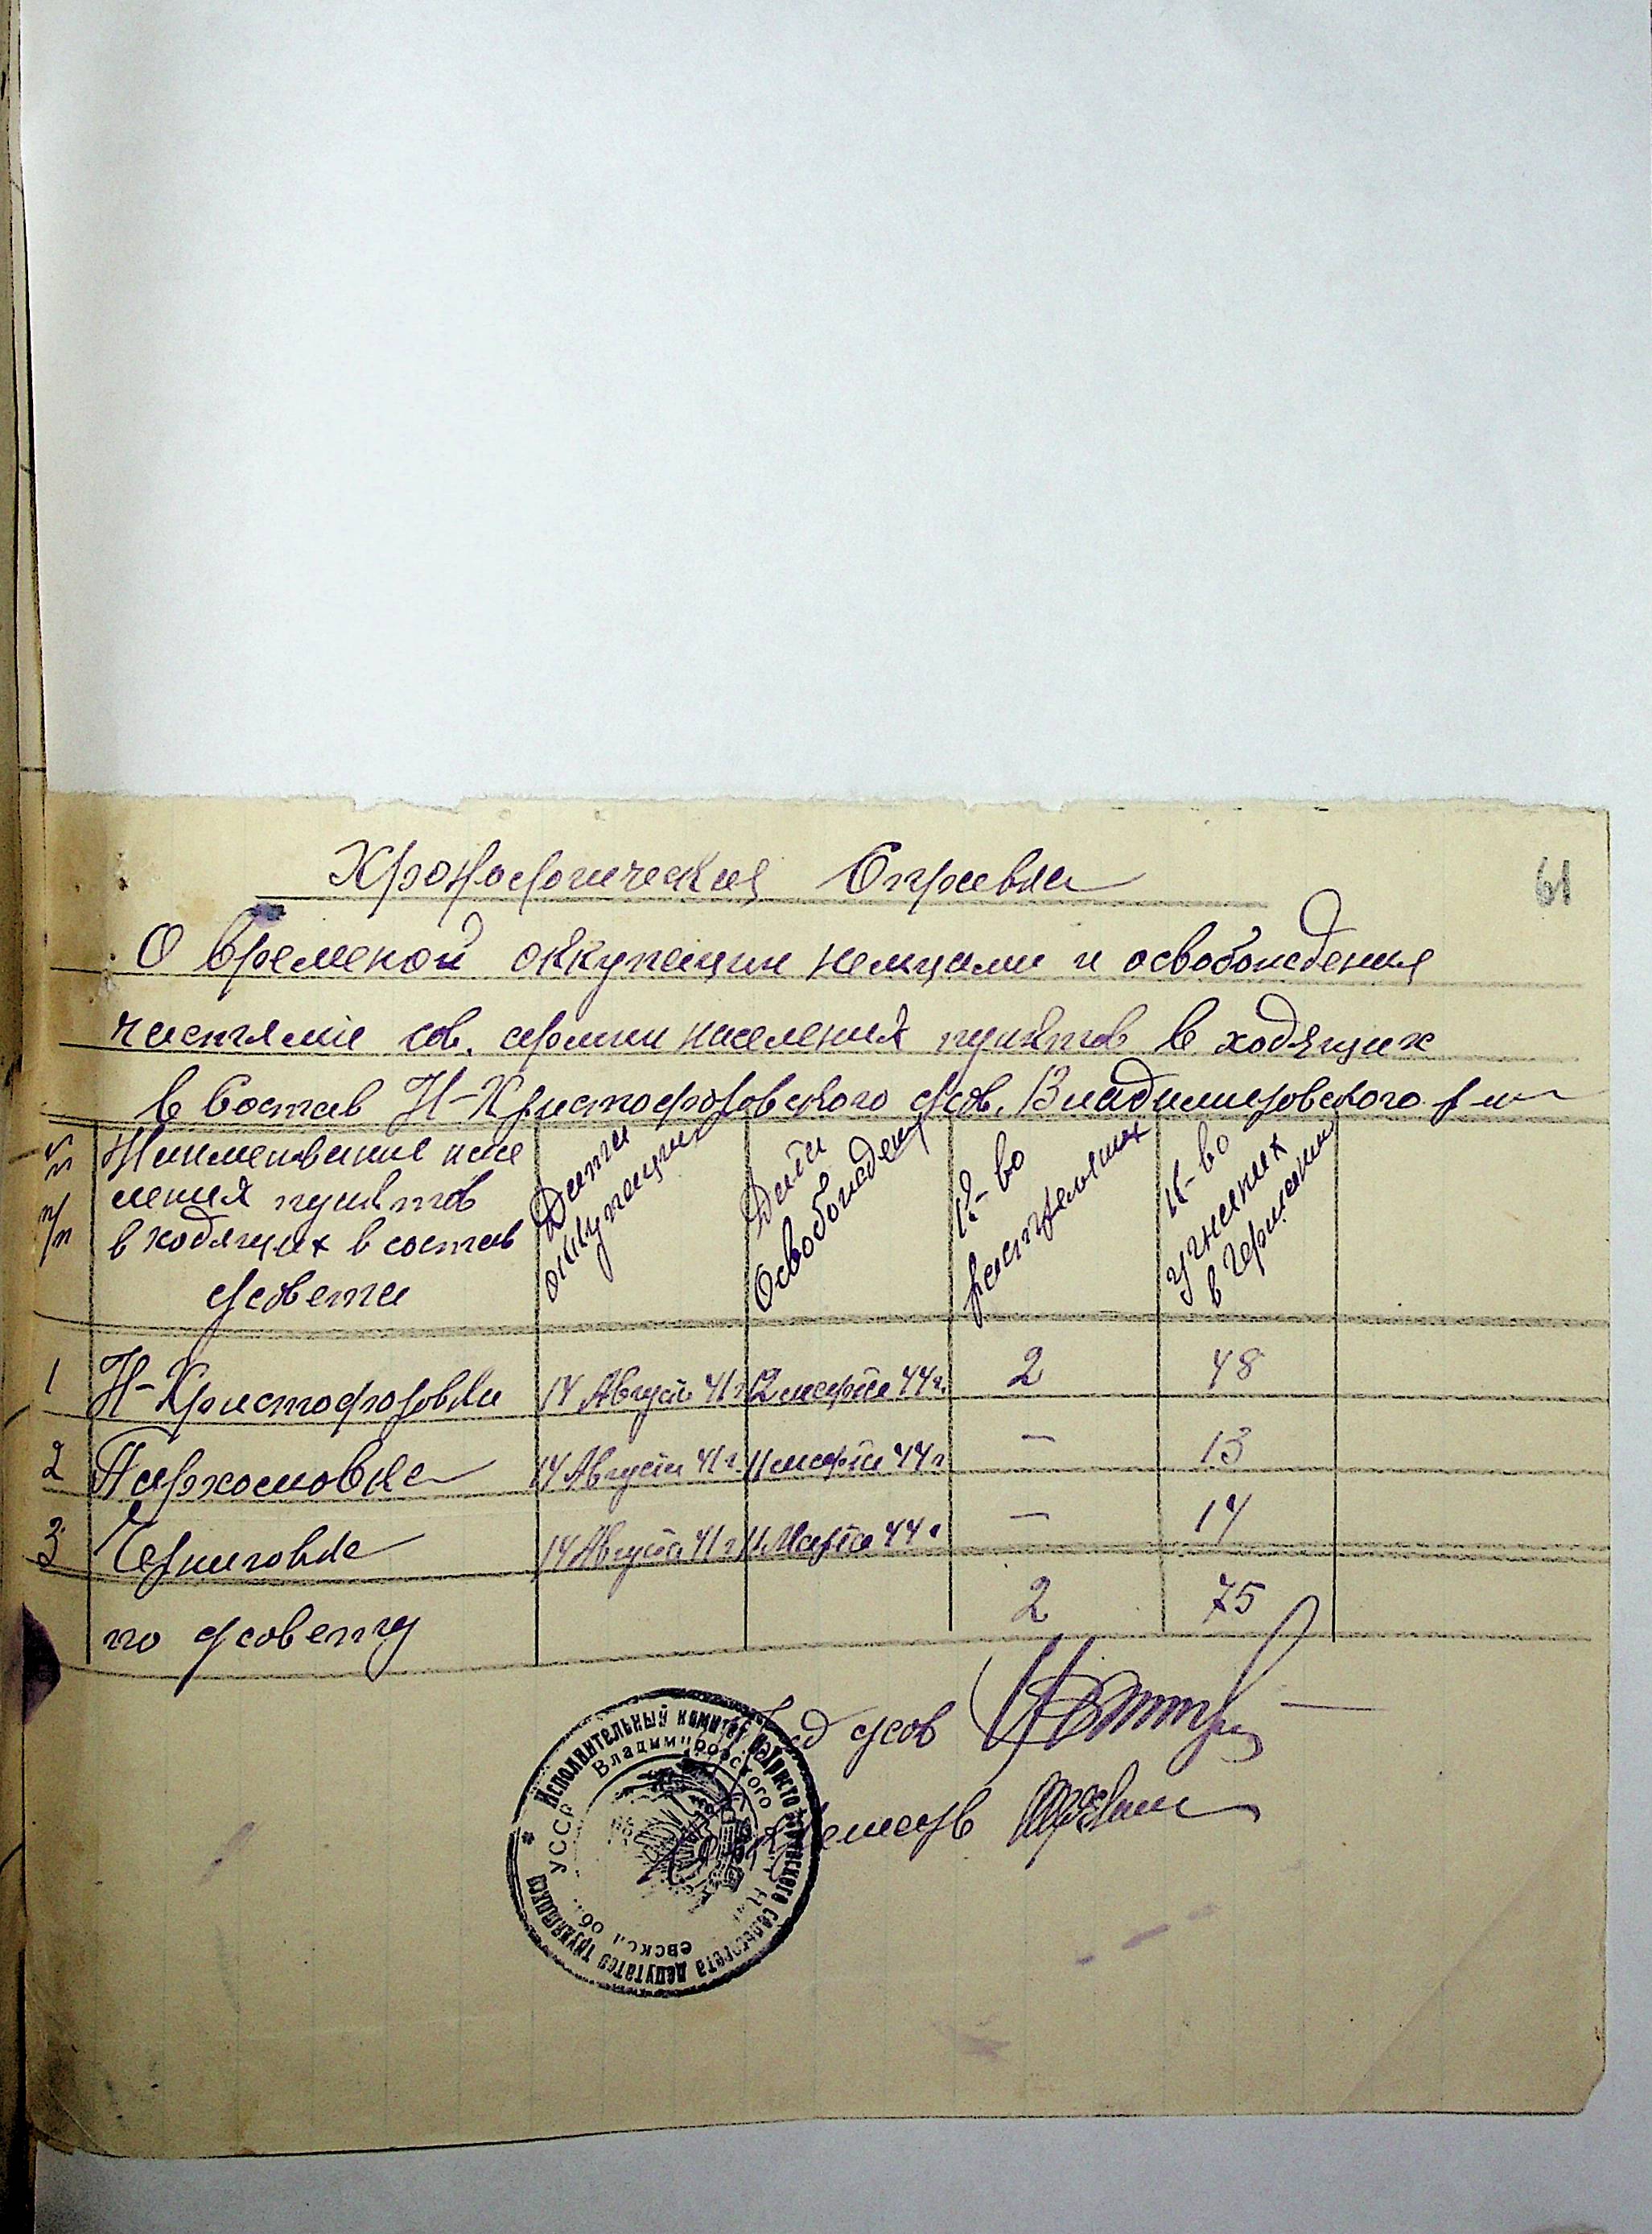 61
Хронологическая Справка
О временой оккупации немцами и освобождения
частями сов. армии населения пунктов в ходящих
в состав Н-Христофоровского с/сов. Владимировского р-на
№№ п/п
Наименование насе
ления пунктов
в ходящих в состав
с/совета
Дата
оккупации
Дата
Освобожден
К-во
расстреляных
К-во
угнаних
в Германию
1 Н-Христофоровка 14 Августа 41г. 12 марта 44г. 2 48
2 Пархомовка 14 Августа 41г. 11 марта 44г. — 13
3 Черниговка 14 Августа 41г. 11 Марта 44г. — 14
по с/совету 2 75
Пред с/сов
Секретарь
Исполнительный комитет сельсовета депутатов трудящихся
Владимировского УССР